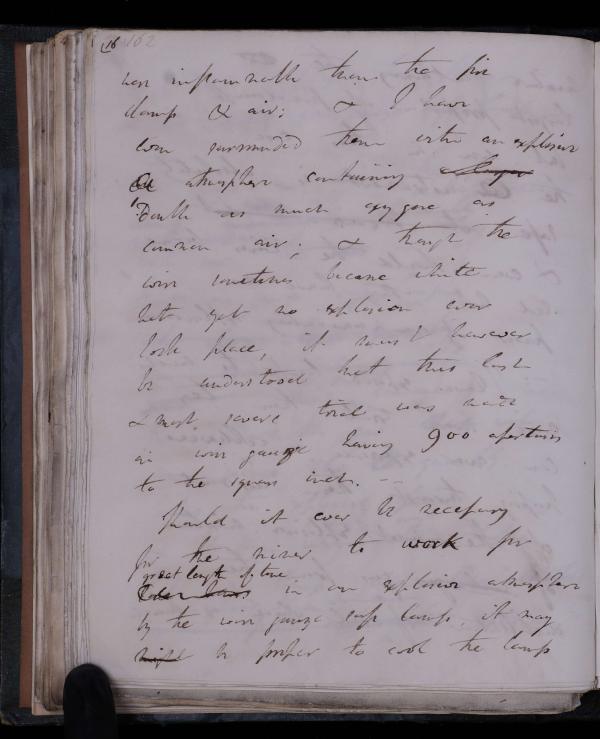 16 162
more inflammable than the fire
damp & air; & I have
even surrounded them with an explosive
atmosphere containing
double as much oxygene as
common air; & though the
wire sometimes became white
hot yet no explosion ever
took place, it must however
be understood that this last
& most severe trial was made
in wire gauze having 900 apertures
to the square inch. —
Should it ever be necessary
for the miner to work for
great length of time
in an explosive atmosphere
by the wire gauze safe lamp, it may
be proper to cool the lamp